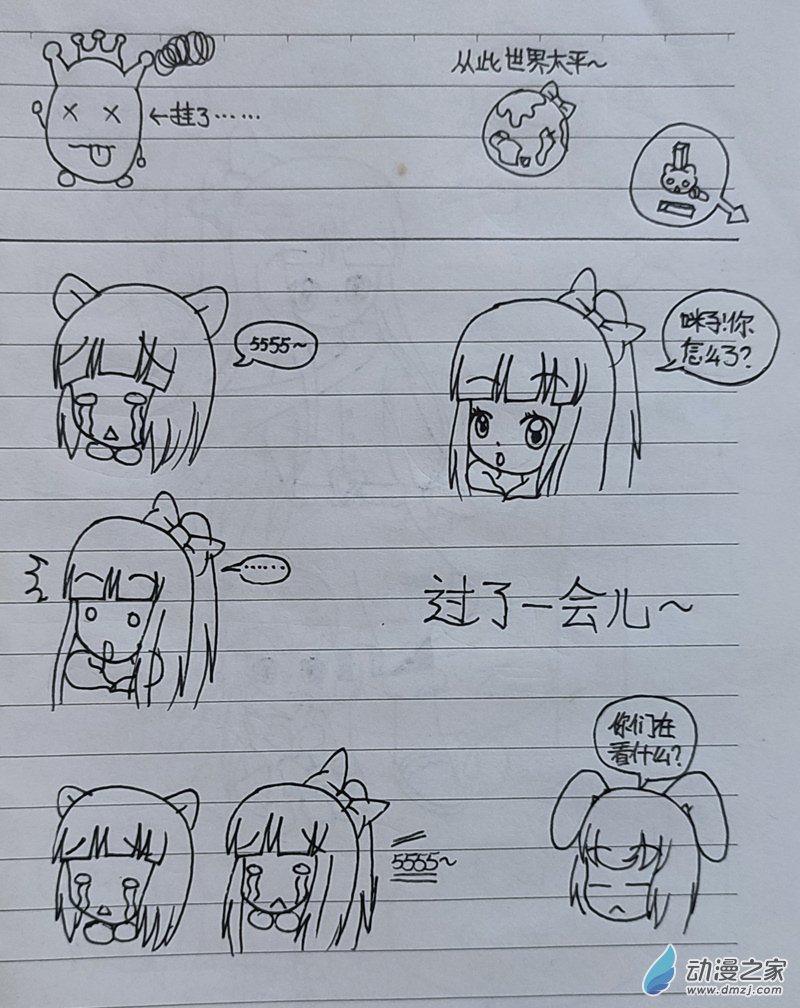 从此世界太平～
←挂了……
5555～
咪子!你
怎么了?
……
过了一会儿～
你们在
看什么?
5555～
动漫之家
www.dmzj.com